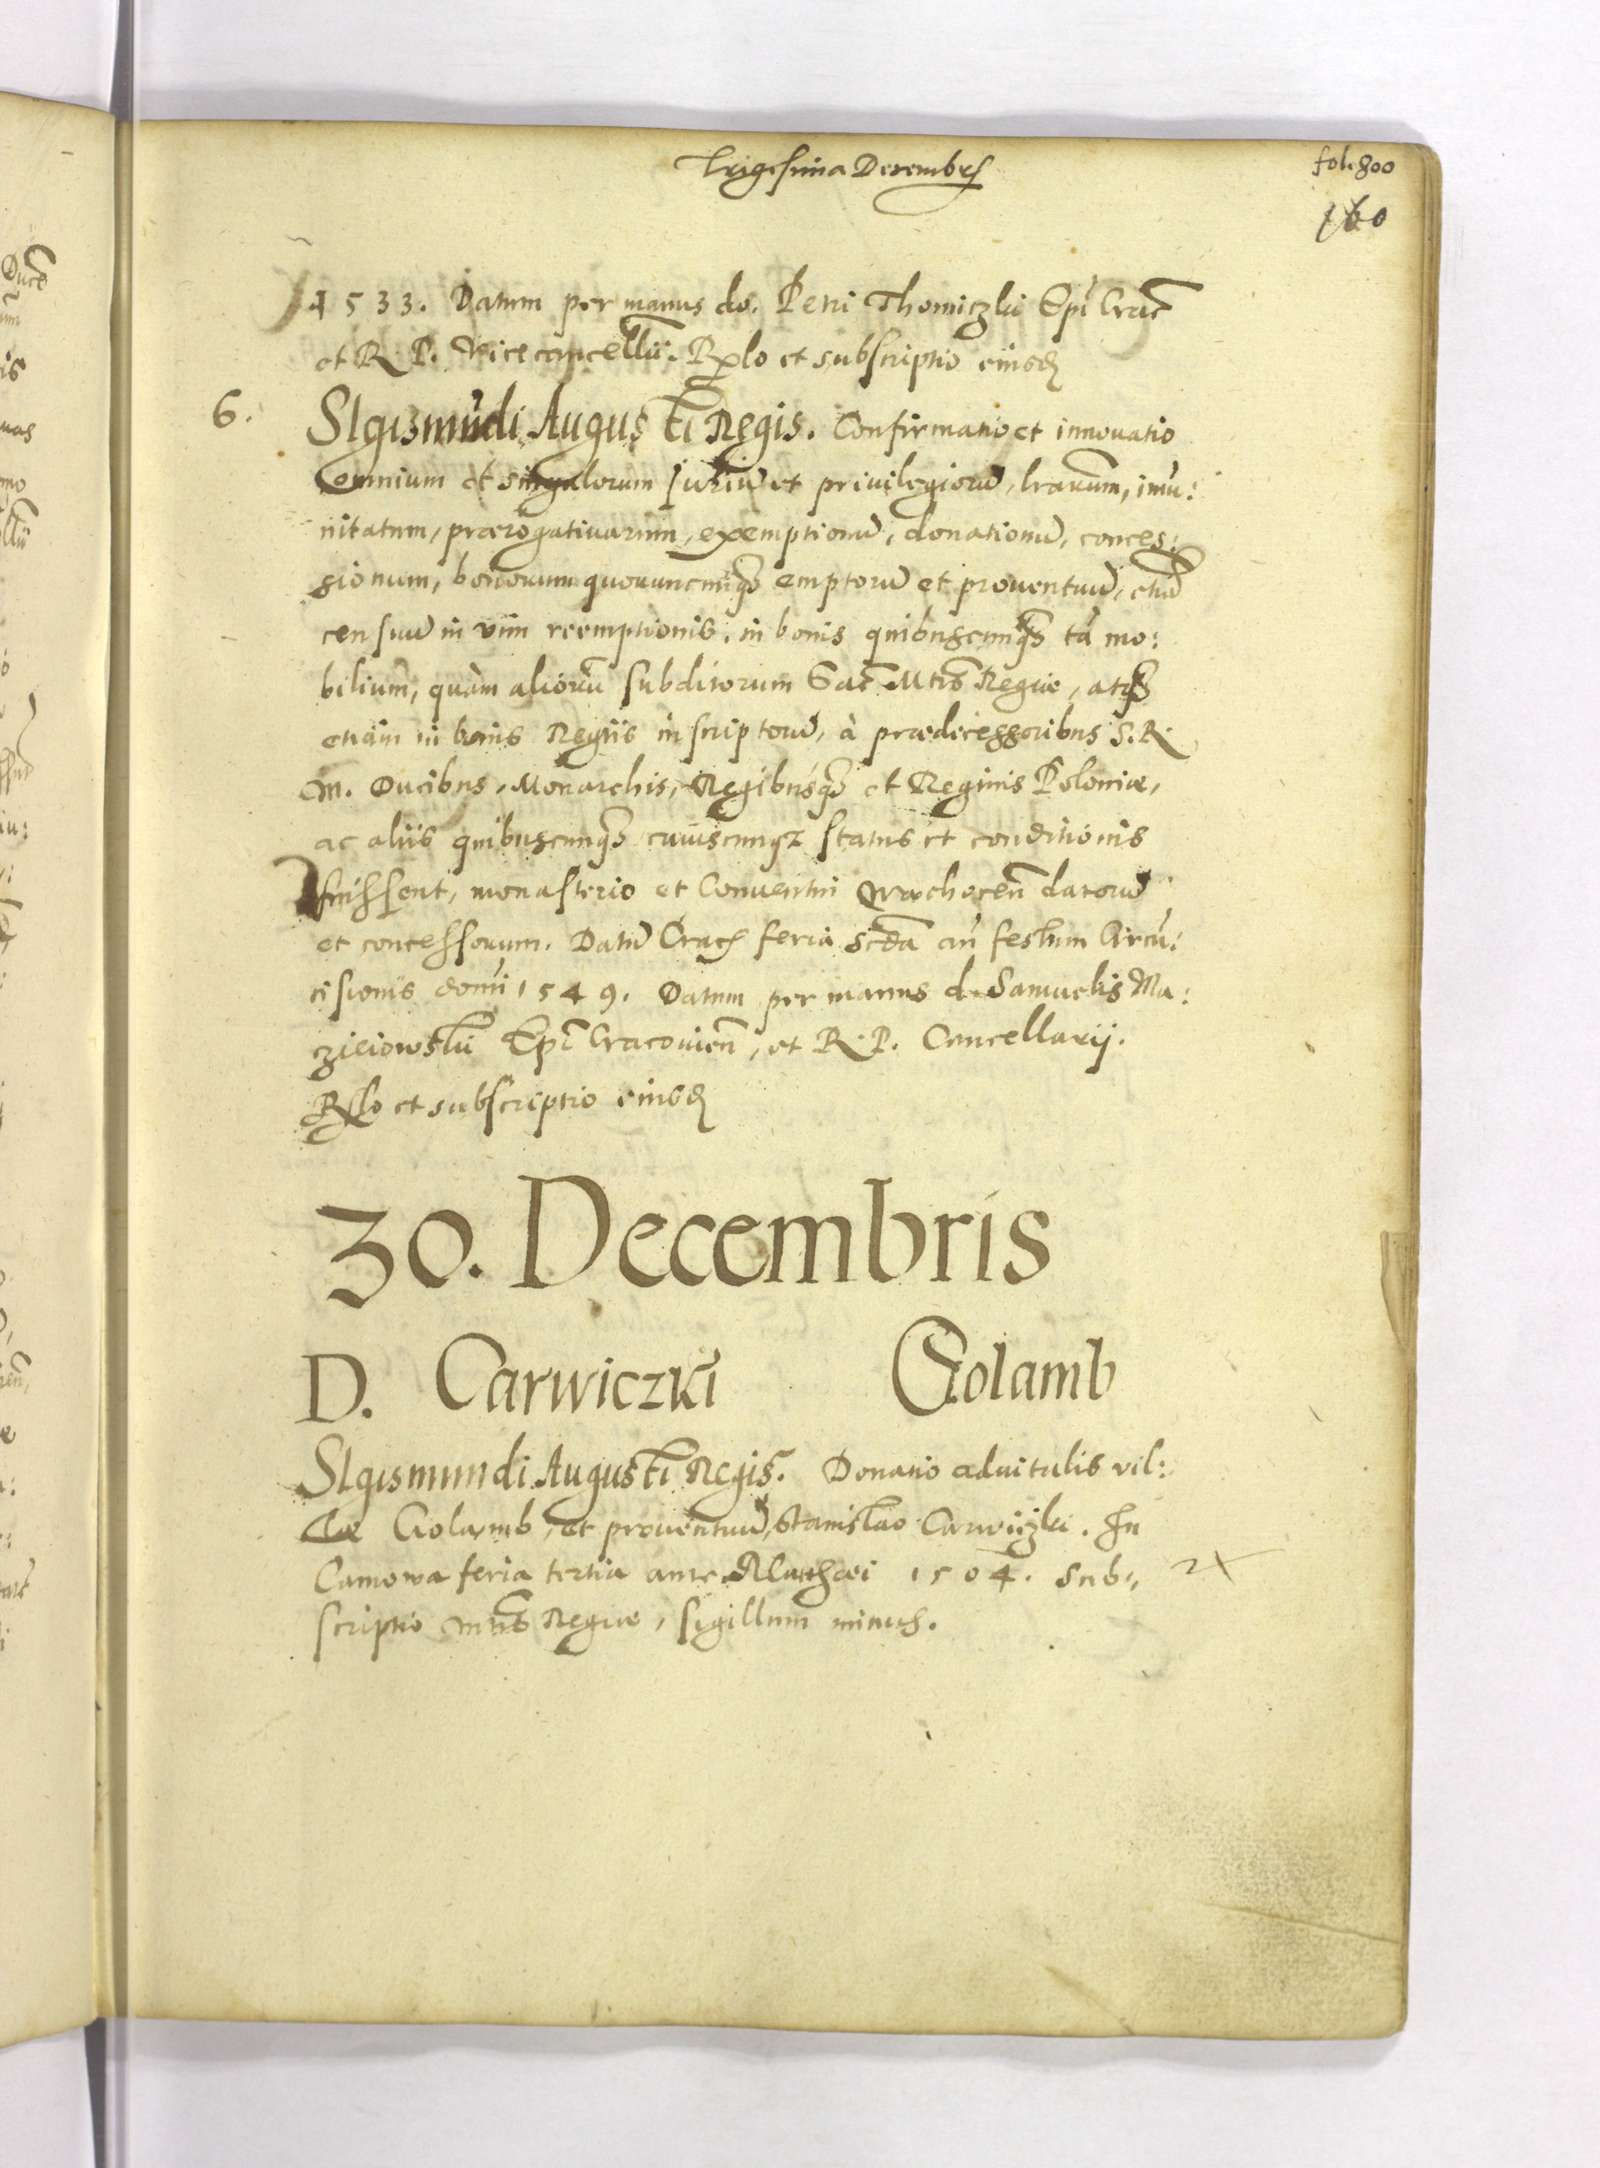 Trigesima Decembris
fol. 800
160
1533. Datum per manus do. Petri Thomiczki Epi Crac
et R. P. Vicecancellii. Rlo et subscriptio eiusd
6. SIgismudi Augusti Regis. Confirmatio et innouatio
omnium et singulorum Iuriu et priuilegioru, lrarum, imu:
nitatum, prærogatiuarum, exemptionu, donationu, conces:
sionum, bonorum quoruncunq emptoru et prouentuu, etia
censuu in vim reemptionis, in bonis quibuscunq ta no:
bilium, quam alioru subditorum Sac Mtis Regiæ, atq
etiam in bonis Regiis inscriptoru, à prædecessoribus S. R.
M. Ducibus, Monarchis, Regibusq et Reginis Poloniæ,
ac aliis quibuscunq cuiuscunqz status et conditionis
fuissent, monasterio et Conuentui Wachocen datoru
et concessorum. Datu Crac feria scda an festum Circu:
cisionis domi 1549. Datum per manus d. Samuelis Ma:
zieiowski Epi Cracouien, et R. P. Cancellarij.
Rlo et subscriptio eiusd
30. Decembris
D. Carwiczki Golamb
SIgismundi Augusti Regis. Donatio aduitalis vil:
læ Golamb, et prouentuu, Stanislao Carwiczki. In
Camowa feria tertia ante Mathæi 1564. Sub:
scriptio Mtis Regiæ, sigillum minus.